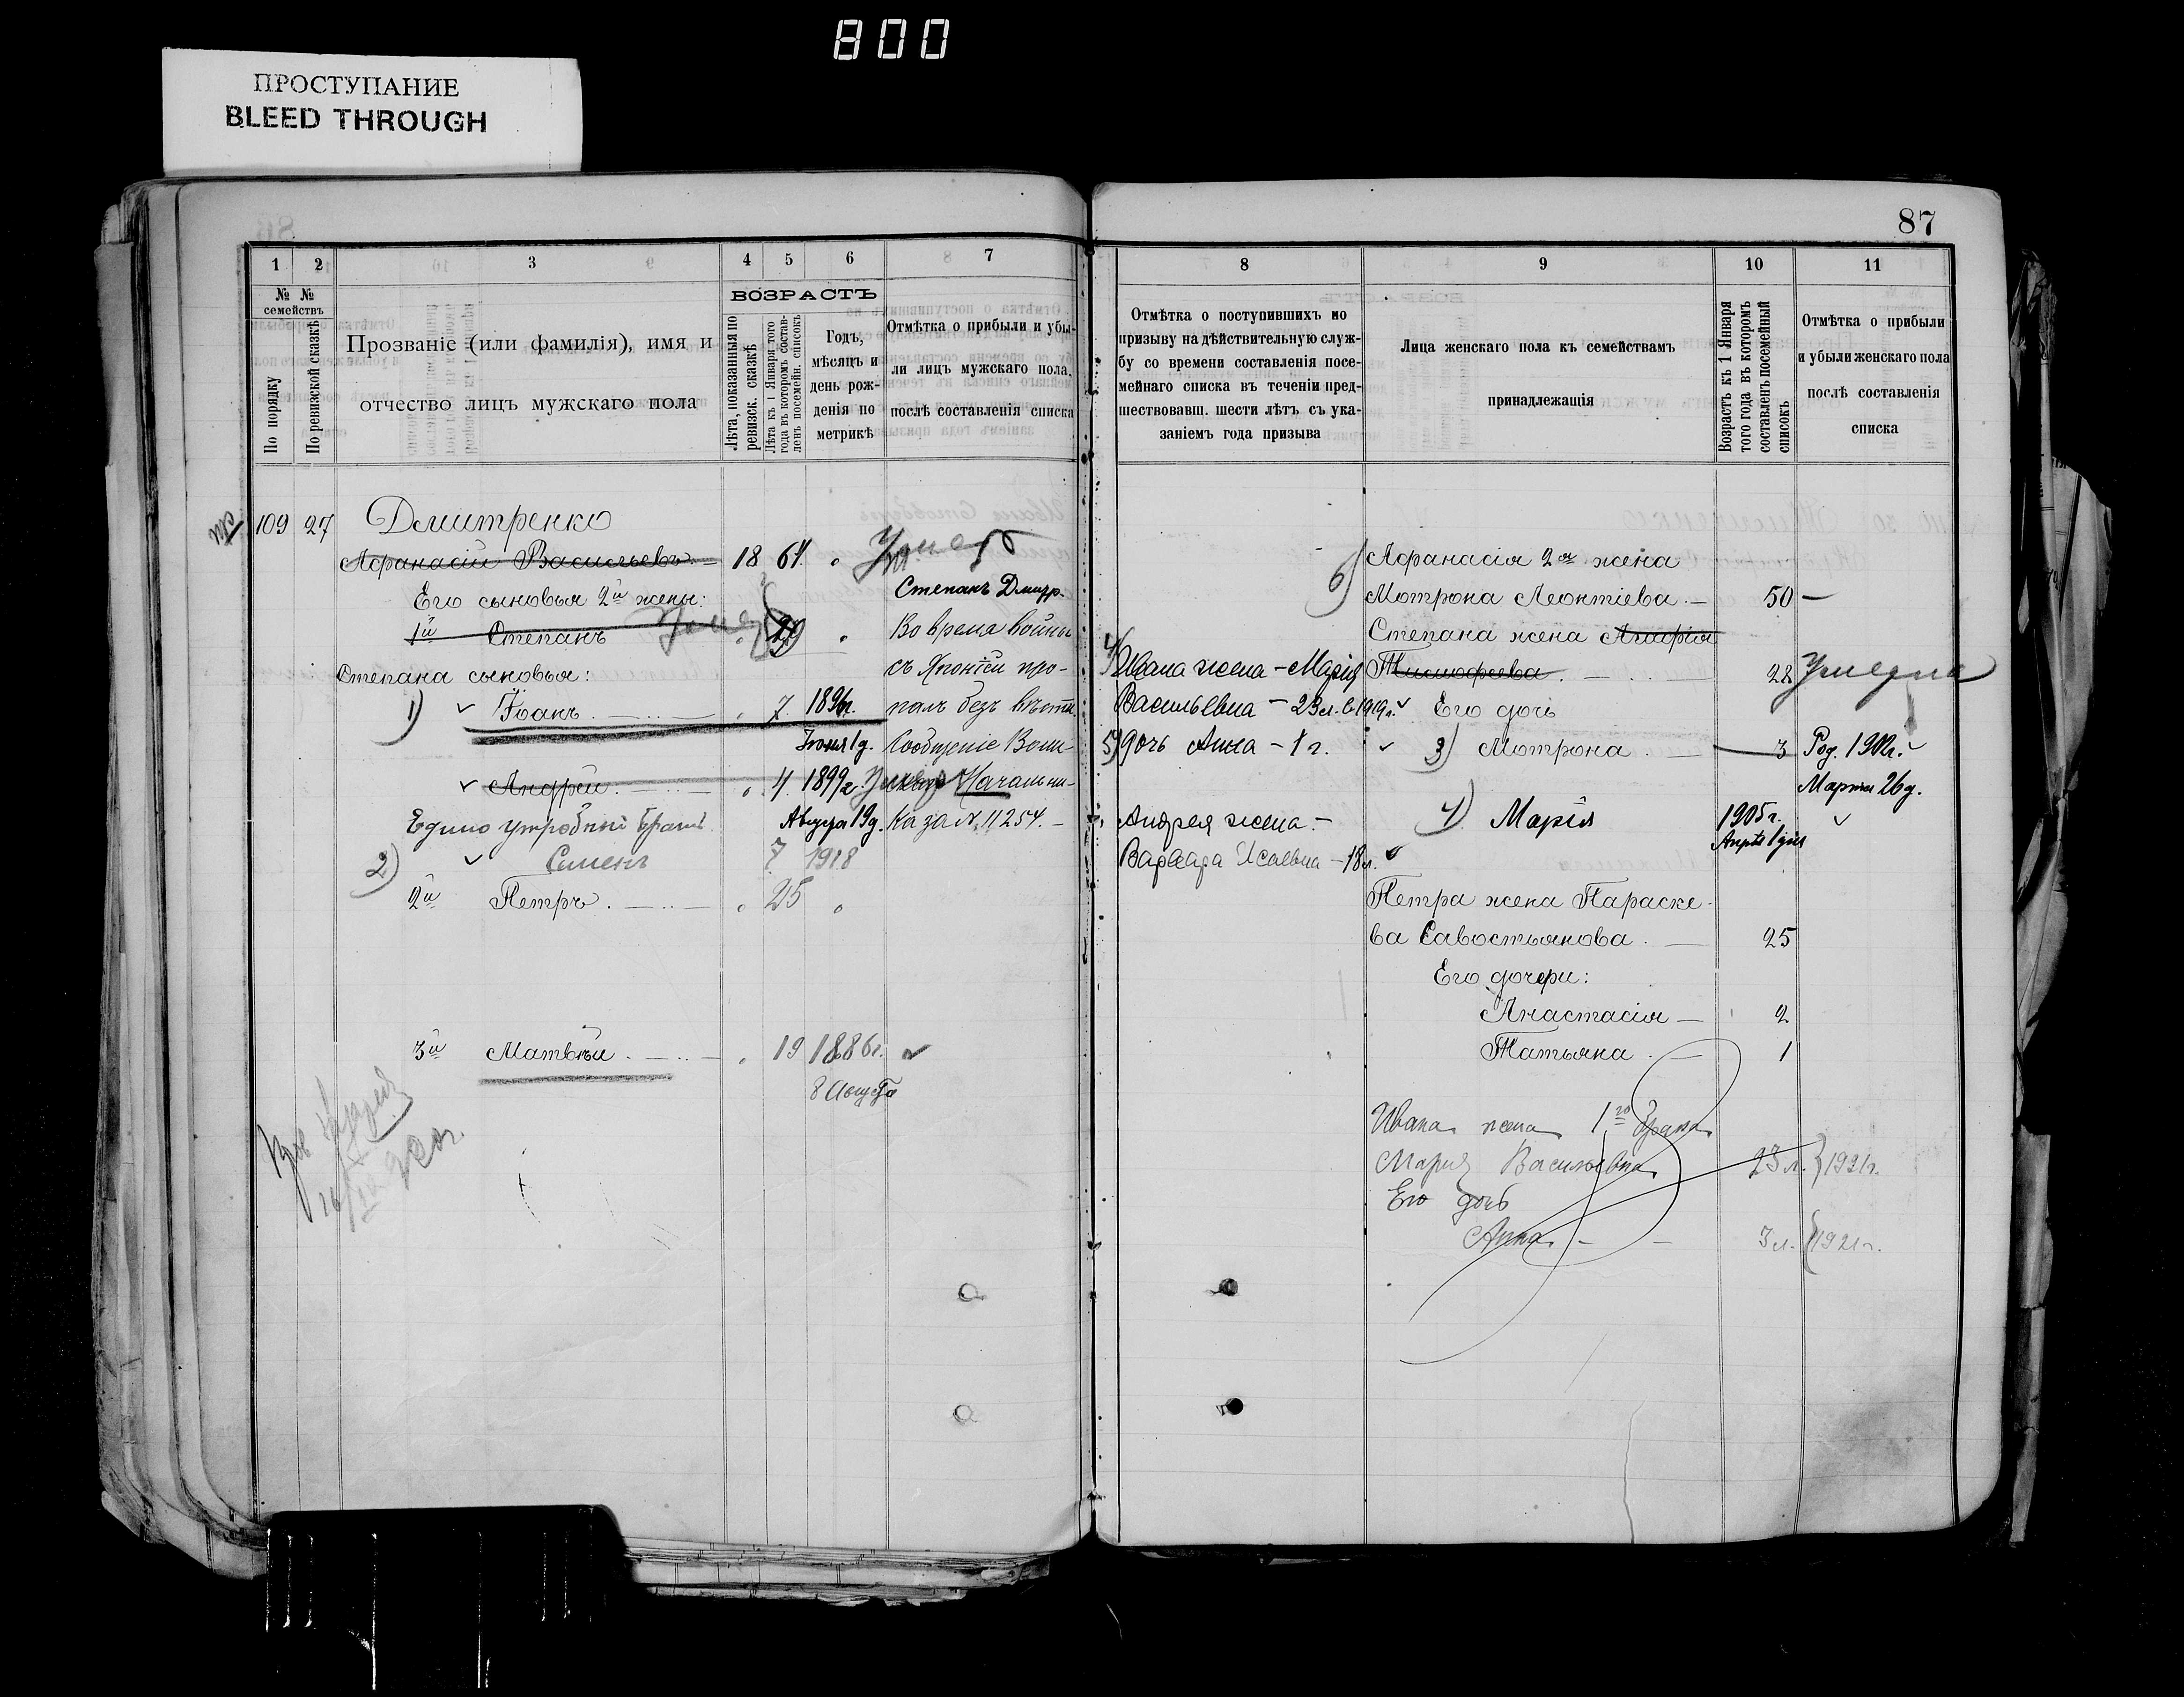 800
ПРОСТУПАНИЕ
BLEED THROUGH
1 2 3 4 5 6 7
№ № семействъ
По порядку
По ревизской сказкѣ
Прозваніе (или фамилія), имя и
отчество лицъ мужскаго пола
ВОЗРАСТЪ
Лѣта, показанныя по
ревизск. сказкѣ
Лѣта къ 1 Января того
года въ которомъ состав-
ленъ посемейн. списокъ
Годъ,
мѣсяцъ и
день рож-
денія по
метрикѣ
Отмѣтка о прибыли и убы-
ли лицъ мужскаго пола,
послѣ составленія списка
109 27 Дмитренко
Афанасій Васильевъ 18 64 Умер
Его сыновья 2й жены: Степанъ Дмитр.
1й Степанъ Умер 29 Во время войны
Степана сыновья: съ Японіей про-
1) Іоанъ 7 1896г. палъ безъ вѣсти.
Іюня 1 д. Сообщеніе Воин-
Андрей 4 1899г. Умер Начальни-
Едино утробный братъ Августа 19 д. ка за № 11254.
2) Семенъ 7 1918
2й Петръ 25
3й Матвѣй 19 1886г.
8 Августа
87
8 9 10 11
Отмѣтка о поступившихъ по
призыву на дѣйствительную служ-
бу со времени составленія посе-
мейнаго списка въ теченіи пред-
шествовавш. шести лѣтъ съ ука-
заніемъ года призыва
Лица женскаго пола къ семействамъ
принадлежащія
Возрастъ къ 1 Января
того года въ которомъ
составленъ посемейный
списокъ
Отмѣтка о прибыли
и убыли женскаго пола
послѣ составленія
списка
6) Афанасія 2я жена
Мотрона Леонтіева 50
Степана жена Агафія
4) Ивана жена - Мария Тимофеева 28 Умерла
Васильевна - 23 л. в 1919г. Его дочь
5) дочь Анна - 1 г. 3) Мотрона 3 Род. 1902г.
Марта 26 д.
Андрея жена 4) Марія 1905г.
Апрѣля 1 дня
Варвара Исаевна - 18 л.
Петра жена Параске-
ва Савостьянова 25
Его дочери:
Анастасія 2
Татьяна 1
Ивана жена 1го брака
Мария Васильевна 23 л. 1921г.
Его дочь
Анна 3 л. 1921г.